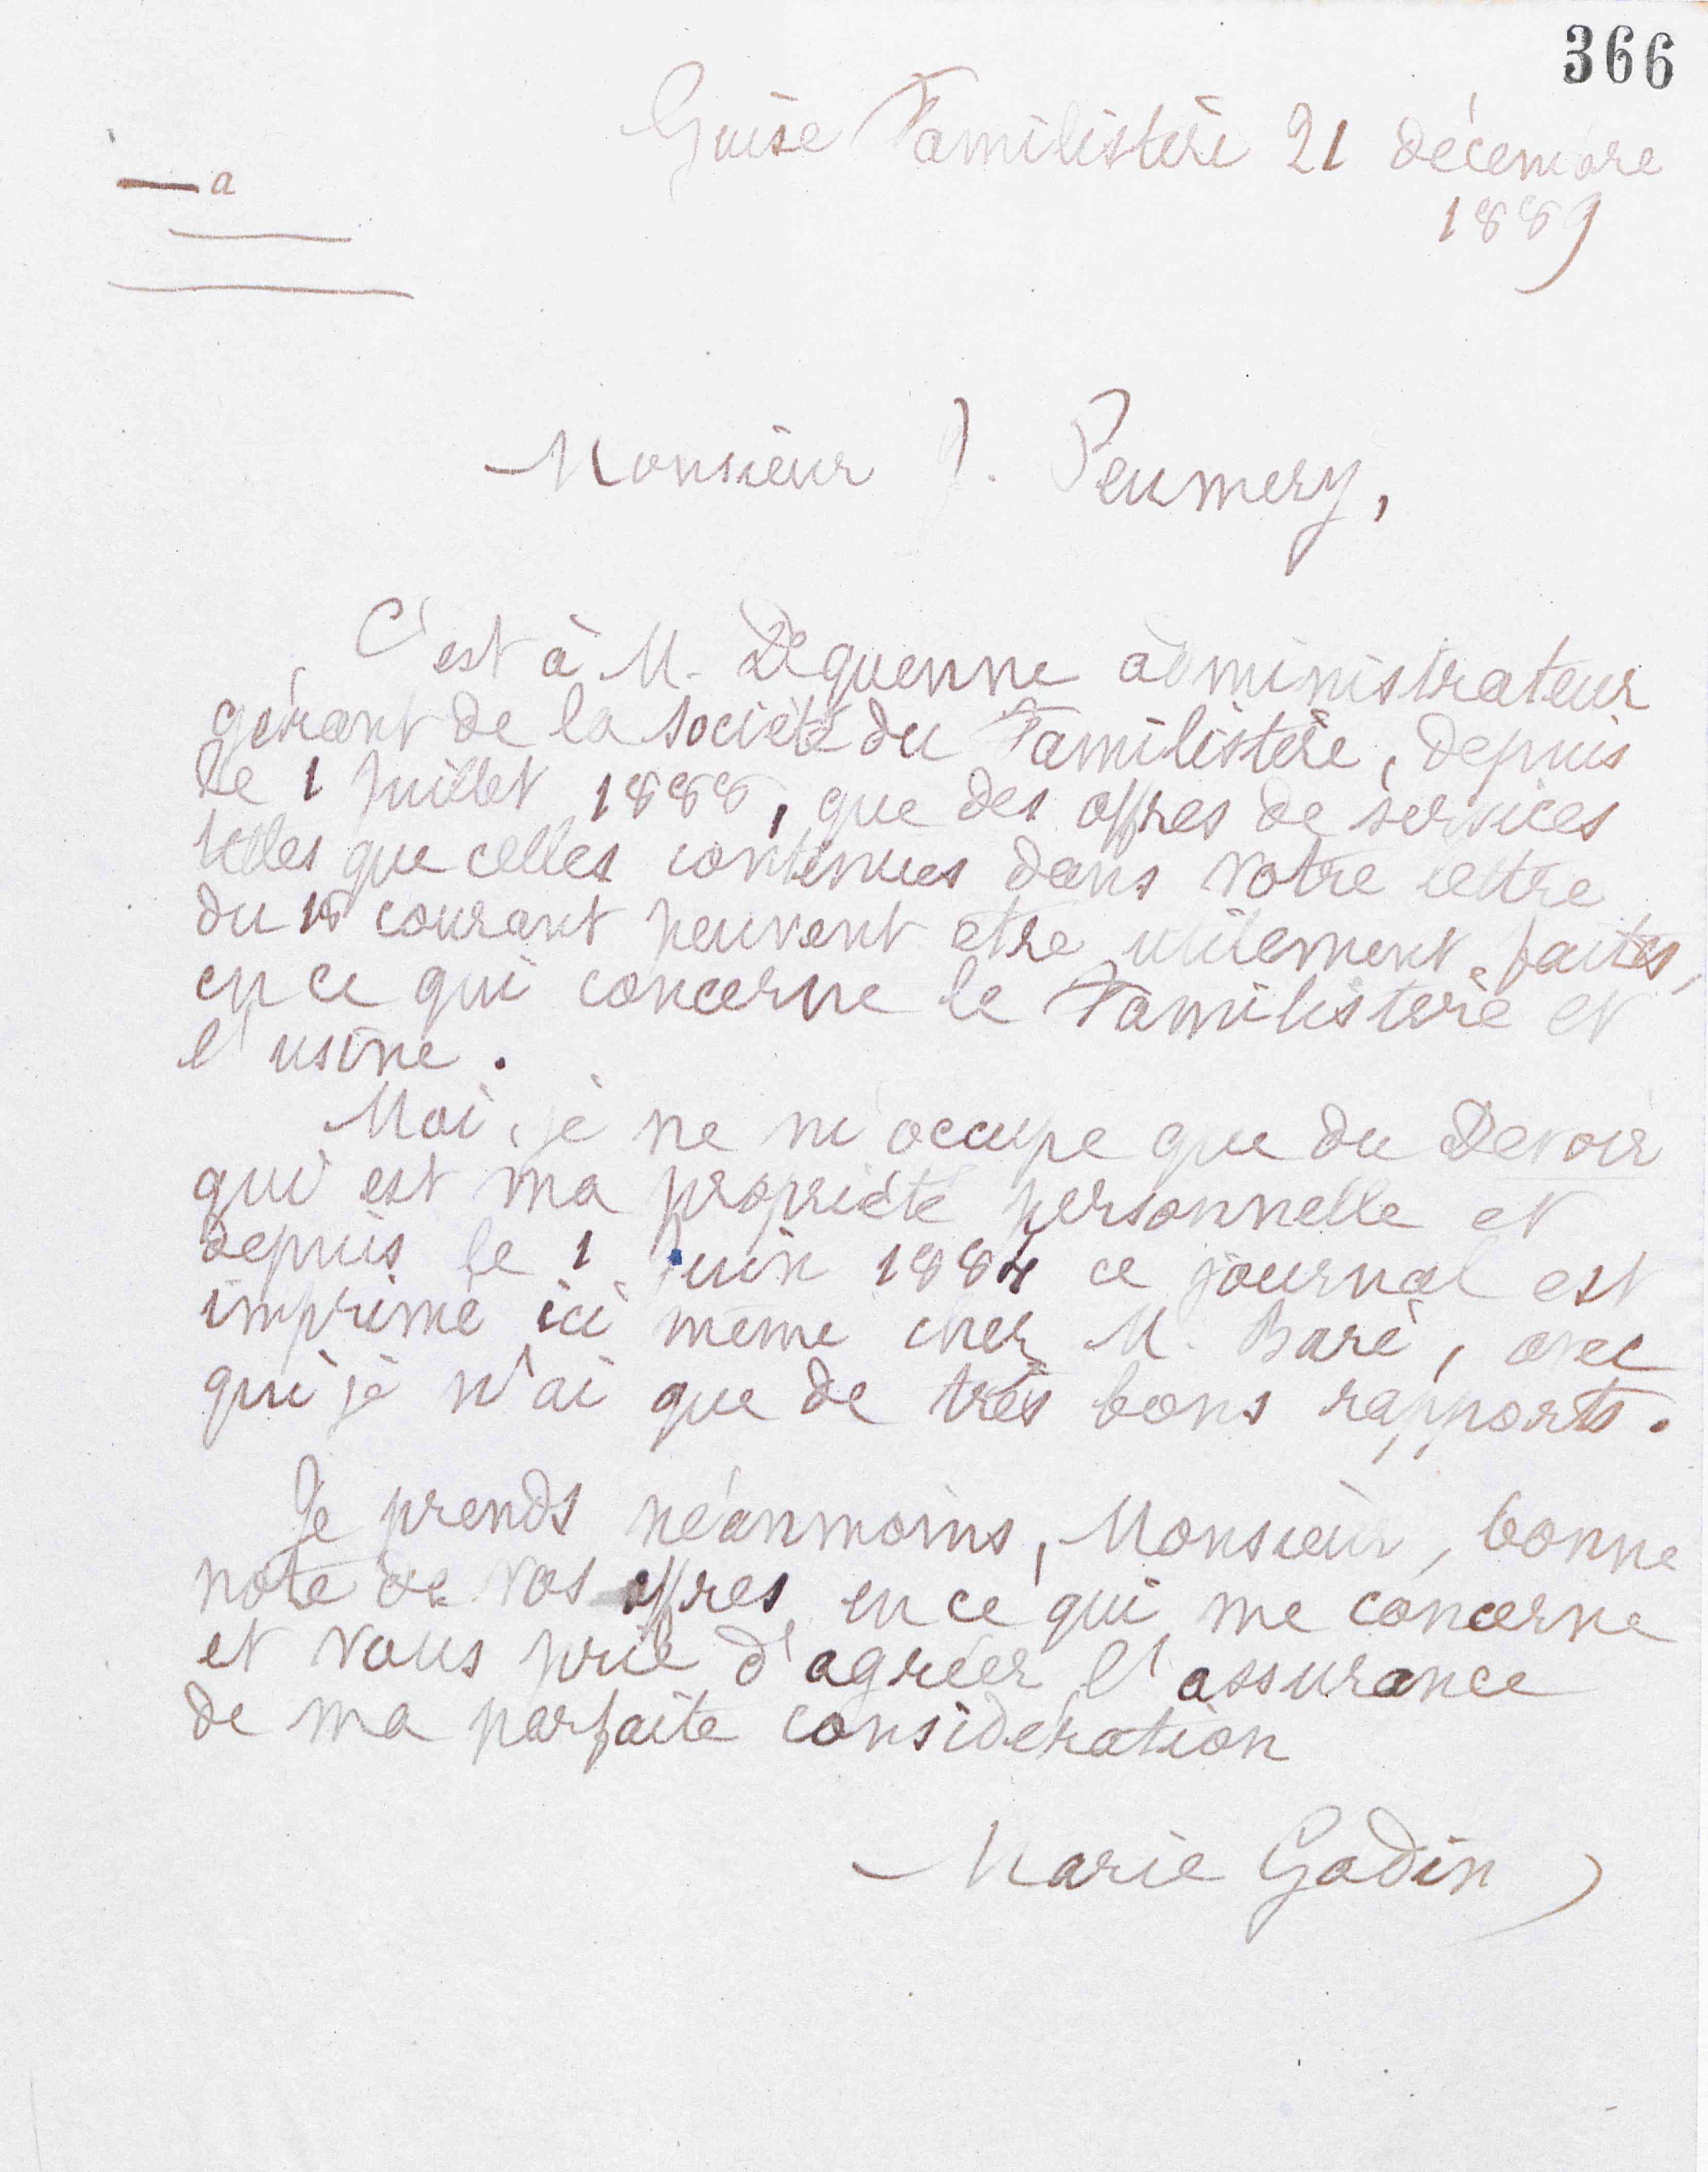 366
Guise Familistère 21 décembre
1889
a
Monsieur J. Peumery,
C'est à M. Dequenne administrateur
gérant de la Société du Familistère, depuis
le 1 Juillet 1888, que des offres de services
telles que celles contenues dans votre lettre
du 18 courant peuvent être utilement faites,
en ce qui concerne le Familistère et
l'usine.
Moi, je ne m'occupe que du Devoir
qui est ma propriété personnelle et
depuis le 1 Juin 1884 ce journal est
imprimé ici même chez M. Baré, avec
qui je n'ai que de très bons rapports.
Je prends néanmoins, Monsieur, bonne
note de vos offres en ce qui me concerne
et vous prie d'agréer l'assurance
de ma parfaite considération
Marie Godin